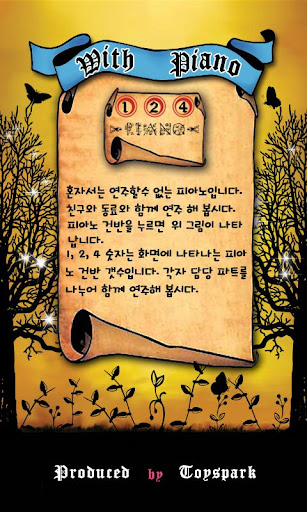 With Piano
1 2 4
PIANO
혼자서는 연주할수 없는 피아노입니다.
친구와 동료와 함께 연주 해 봅시다.
피아노 건반을 누르면 위 그림이 나타
납니다.
1, 2, 4 숫자는 화면에 나타나는 피아
노 건반 갯수입니다. 각자 담당 파트를
나누어 함께 연주해 봅시다.
Produced by Toyspark